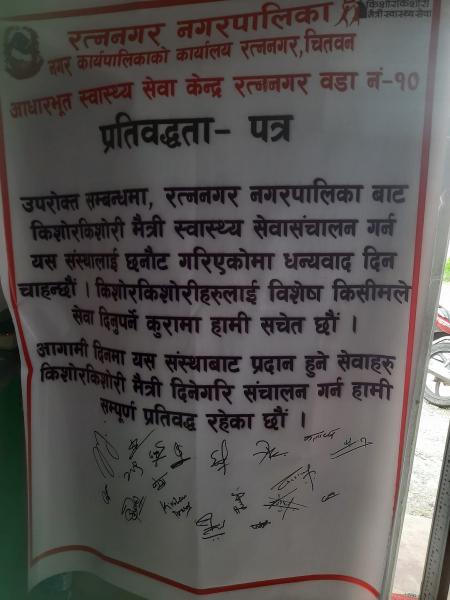 रत्ननगर नगरपालिका
किशोरकिशोरी
मैत्री स्वास्थ्य सेवा
नगर कार्यपालिकाको कार्यालय रत्ननगर, चितवन
आधारभूत स्वास्थ्य सेवा केन्द्र रत्ननगर वडा नं-१०
प्रतिवद्धता- पत्र
उपरोक्त सम्बन्धमा, रत्ननगर नगरपालिका बाट
किशोरकिशोरी मैत्री स्वास्थ्य सेवासंचालन गर्न
यस संस्थालाई छनौट गरिएकोमा धन्यवाद दिन
चाहन्छौं । किशोरकिशोरीहरुलाई विशेष किसीमले
सेवा दिनुपर्ने कुरामा हामी सचेत छौं ।
आगामी दिनमा यस संस्थाबाट प्रदान हुने सेवाहरु
किशोरकिशोरी मैत्री दिनेगरि संचालन गर्न हामी
सम्पूर्ण प्रतिवद्ध रहेका छौं ।